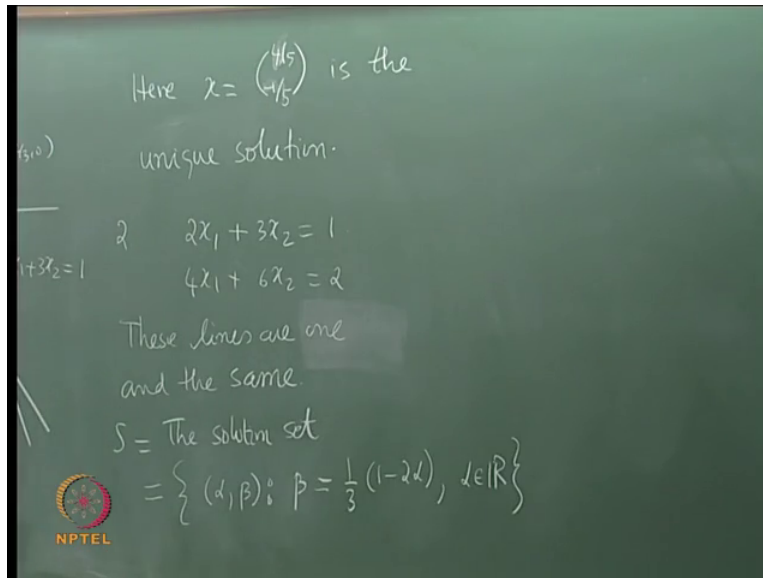 Here x = (4/5 -1/5) is the
unique solution.
/3,0)
2 2x₁ + 3x₂ = 1
x₁+3x₂=1
4x₁ + 6x₂ = 2
These lines are one
and the same.
S = The solution set
= { (α, β) : β = 1/3 (1-2α), α∈ℝ }
NPTEL